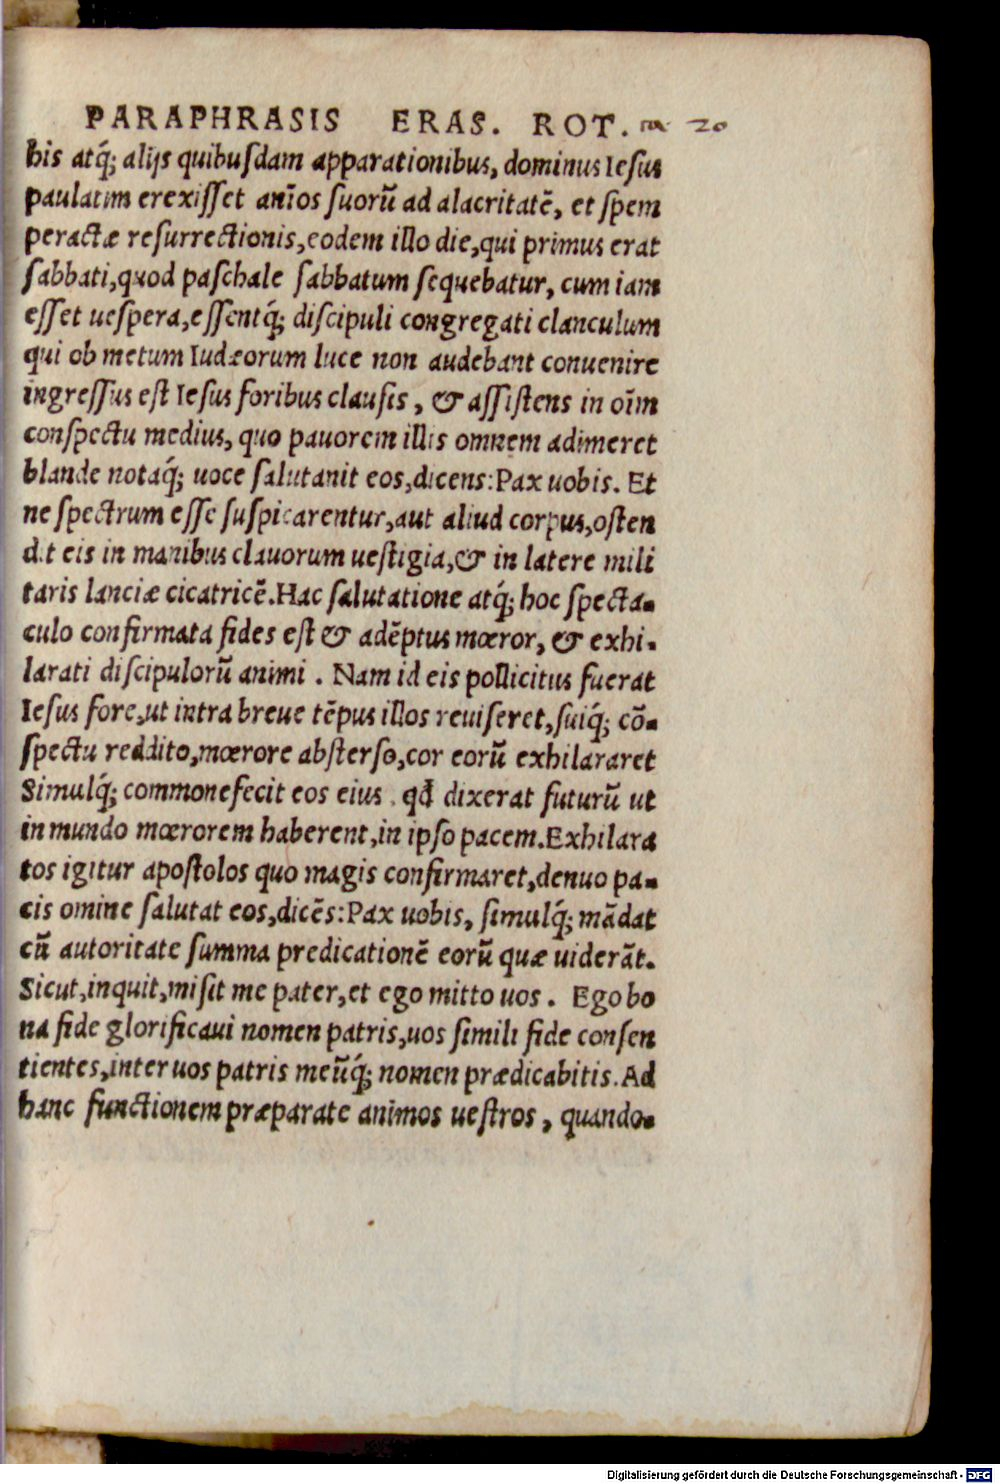 PARAPHRASIS ERAS. ROT. in 20
his atq́; alijs quibuſdam apparationibus, dominus Ieſus
paulatim erexiſſet anīos ſuorū ad alacritatē, et ſpem
peractæ reſurrectionis,eodem illo die,qui primus erat
ſabbati,quod paſchale ſabbatum ſequebatur, cum iam
eſſet ueſpera,eſſentq́; diſcipuli congregati clanculum
qui ob metum Iudæorum luce non audebant conuenire
ingreſſus eſt Ieſus foribus clauſis , & aſſiſtens in oīm
conſpectu medius, quo pauorem illis omnem adimeret
blande notaq́; uoce ſalutanit eos,dicens:Pax uobis. Et
ne ſpectrum eſſe ſuſpicarentur,aut aliud corpus,oſten
dit eis in manibus clauorum ueſtigia,& in latere mili
taris lanciæ cicatricē.Hac ſalutatione atq́; hoc ſpecta-
culo confirmata fides eſt & adēptus mœror, & exhi-
larati diſcipulorū animi . Nam id eis pollicitus fuerat
Ieſus fore,ut intra breue tēpus illos reuiſeret,ſuiq́; cō-
ſpectu reddito,mœrore abſterſo,cor eorū exhilararet
Simulq́; commonefecit eos eius . qđ dixerat futurū ut
in mundo mœrorem haberent,in ipſo pacem.Exhilara
tos igitur apoſtolos quo magis confirmaret,denuo pa-
cis omine ſalutat eos,dicēs:Pax uobis, ſimulq́; mādat
cū autoritate ſumma predicationē eorū quæ uiderāt.
Sicut,inquit,miſit me pater,et ego mitto uos . Ego bo
na fide glorificaui nomen patris,uos ſimili fide conſen
tientes,inter uos patris meūq́; nomen prædicabitis.Ad
hanc functionem præparate animos ueſtros , quando-
Digitalisierung gefördert durch die Deutsche Forschungsgemeinschaft - DFG